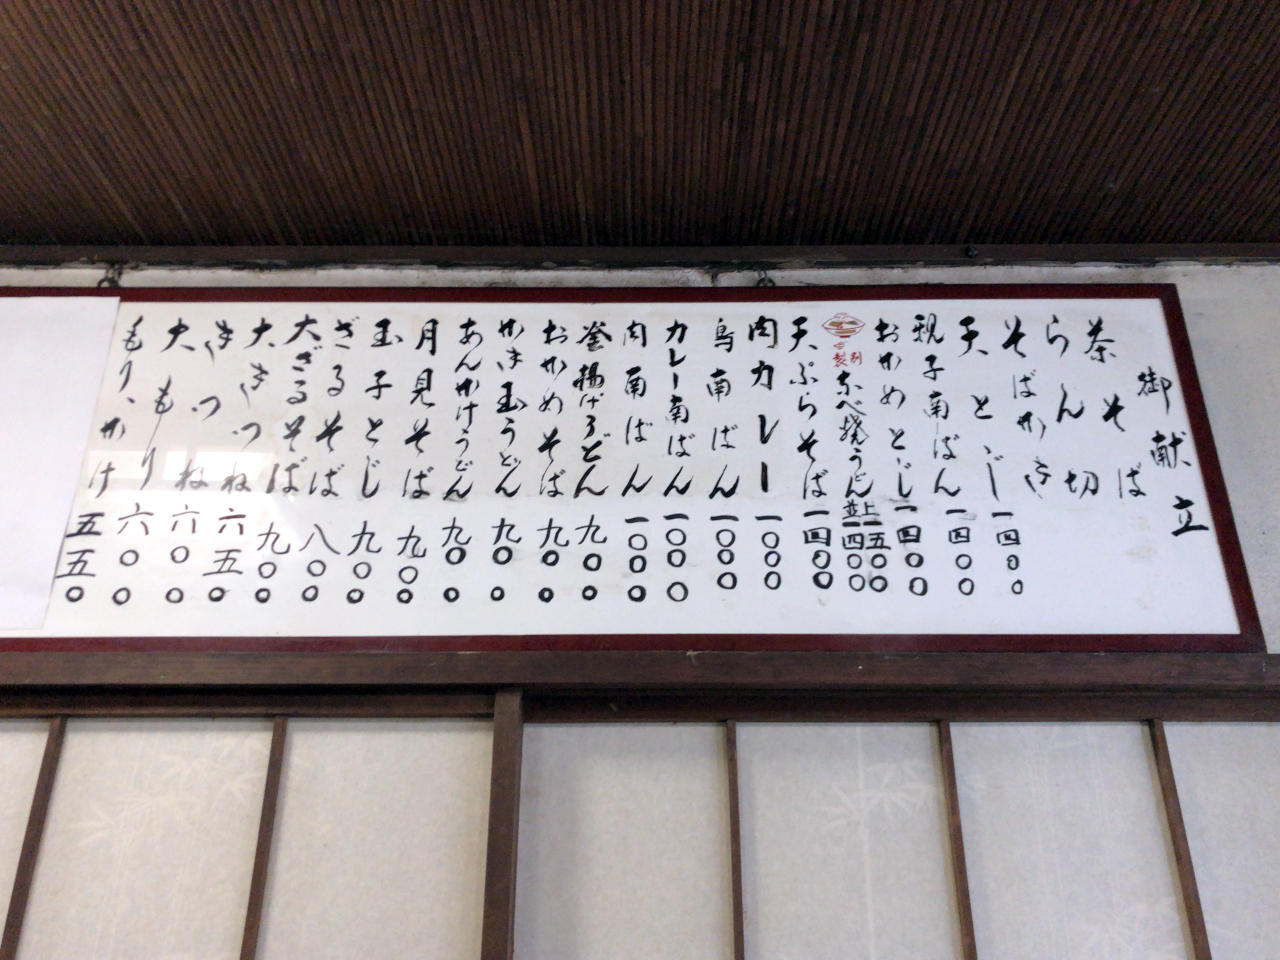 御献立
茶そば
らん切
そばがき
天とじ 一四〇〇
親子南ばん 一四〇〇
おかめとじ 一四〇〇
特製 なべ焼うどん 上一五〇〇 並一四〇〇
天ぷらそば 一四〇〇
肉カレー 一〇〇〇
鳥南ばん 一〇〇〇
カレー南ばん 一〇〇〇
肉南ばん 一〇〇〇
釜揚げうどん 九〇〇
おかめそば 九〇〇
かま玉うどん 九〇〇
あんかけうどん 九〇〇
月見そば 九〇〇
玉子とじ 九〇〇
ざるそば 八〇〇
大ざるそば 九〇〇
大きつね
きつね 六五〇
大もり 六〇〇
もり、かけ 五五〇